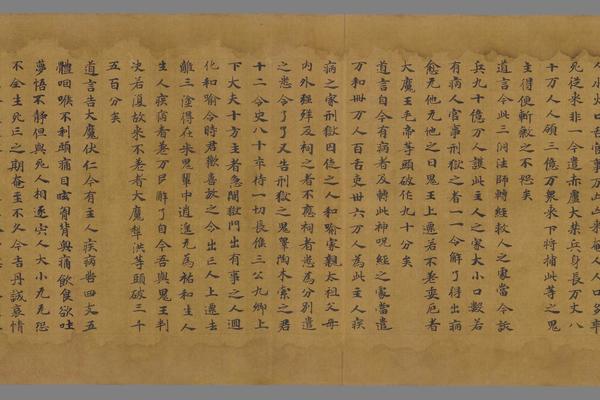 死從來非一今遣赤盧大煞兵身長万丈八
十万人人領三億万眾來下將捕此等之鬼
主得便斬煞之不恕矣
道言今此三洞法師轉經救人之處當令
兵九十億万人護此主人之家大小口數若
有病人官事刑獄之者一一令解了得出病
愈无他无他之日鬼王上遷若不差厄者
大魔王毛帝等頭破作九十六分矣
道言自今有病者及轉此神呪經之處當遣
万和卌万人百舌吏卅六万人為此主人疾
病之家刑獄囚徒之人和喻家親太祖父母
内外經殍及祠之者不應祠者悉為分別遣
之悉令了了又告刑獄之鬼單陶朱索之君
十二令史八十卒侍一切長三公九卿上
下大夫十方主者急開獄門出有事之人迴
化和喻令時君歡喜放之令出三人上遷去
離三塗得在來鬼輩中逍遥无為祐和生人
生人疾病者差万尸解了自今吾與鬼王判
决若復故來不差者大魔犂洪等頭破三千
五百分矣
道言告大魔伏仁今有主人疾病沓四支五
體咽喉不利頭痛目眩胷背與痛飲食欲吐
夢悟不静但與死人相逐人大小无无恐
不全生死三之期奄至不久今吉丹誠哀情